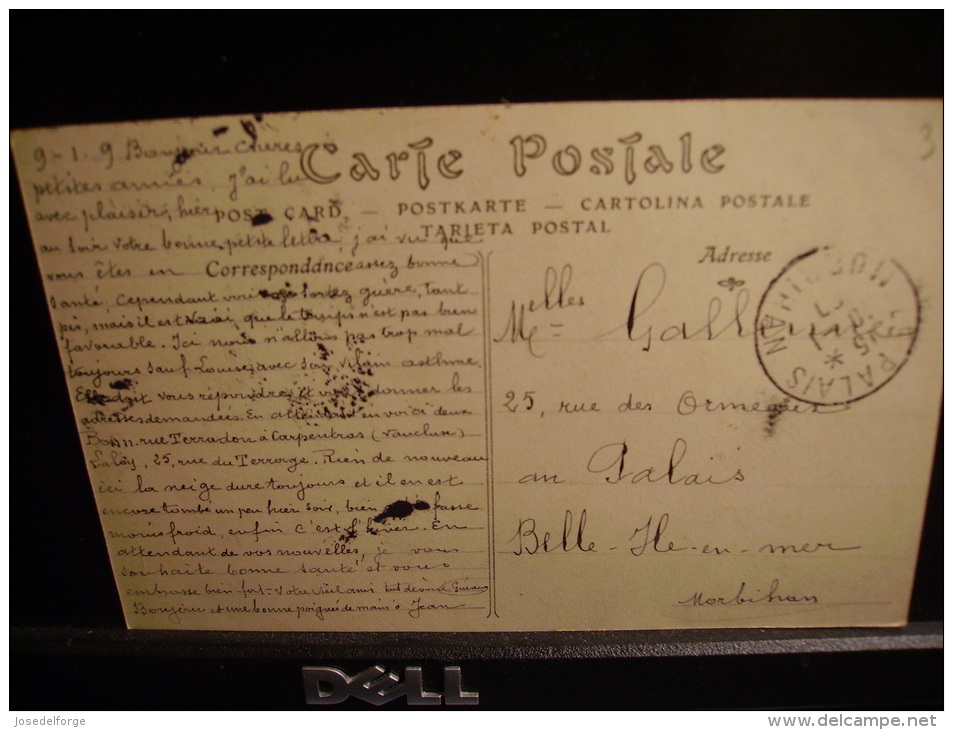 Carte Postale
POST CARD. — POSTKARTE — CARTOLINA POSTALE
TARJETA POSTAL
Correspondance
Adresse
9-1 9 Bonjour chères
petites amies. J'ai lu
avec plaisir, hier
au soir votre bonne petite lettre, j'ai vu que
vous êtes en assez bonne
santé. Cependant vous ne sortez guère, tant
pis, mais il est vrai que le temps n'est pas bien
favorable. Ici nous n'allons pas trop mal
toujours sauf Louise avec son vilain asthme.
Elle doit vous répondre et vous donner les
adresses demandées. En attendant en voici deux
rue Terradon à Carpentras (Vaucluse)
25, rue du Terrage. Rien de nouveau
ici la neige dure toujours et il en est
encore tombé un peu hier soir, bien fasse
moins froid, enfin c'est l'hiver. En
attendant de vos nouvelles, je vous
souhaite bonne santé et vous
embrasse bien fort. Votre vieil ami
Bonjour et une bonne poignée de mains. Jean
Melles
25, rue des Ormeaux
au Palais
Belle-Ile-en-mer
Morbihan
LE PALAIS
MORBIHAN
3
DELL
Josedelforge
www.delcampe.net